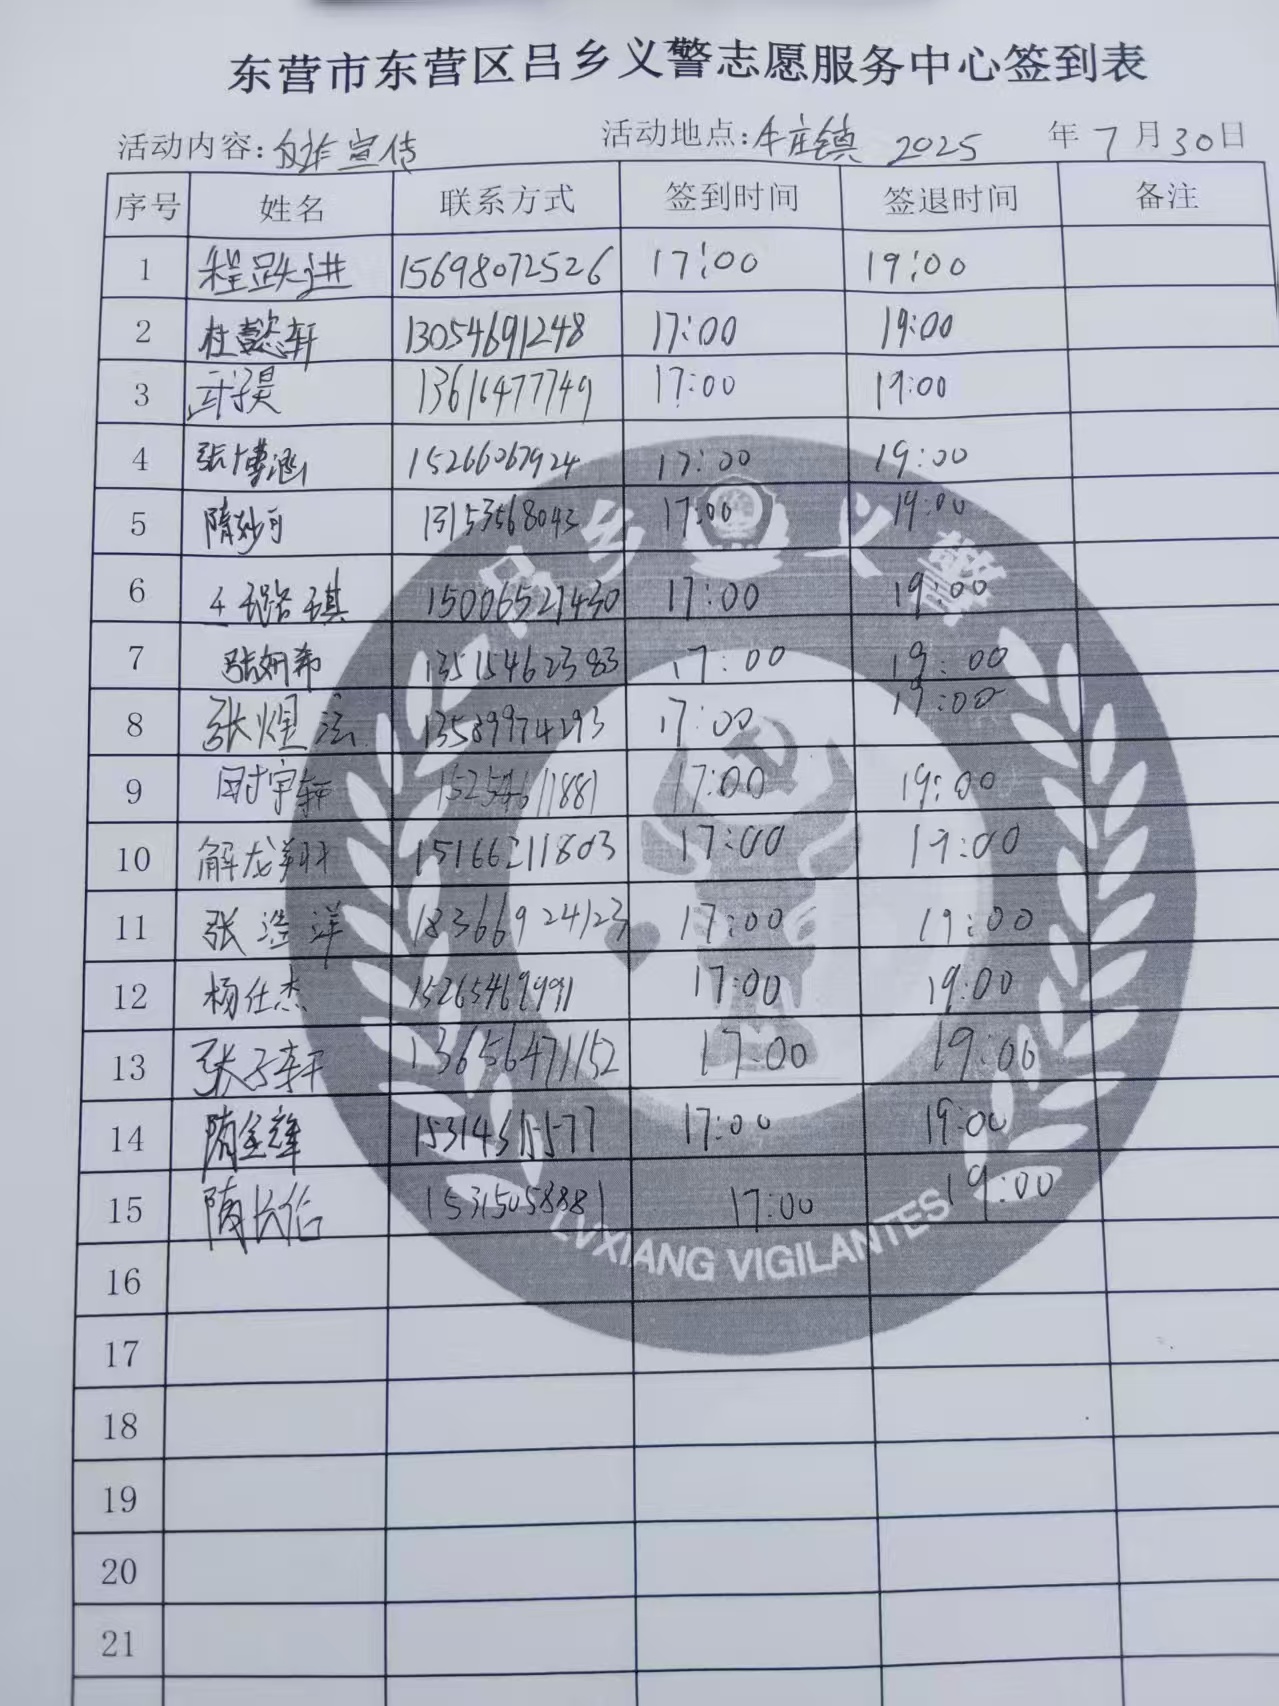 东营市东营区吕乡义警志愿服务中心签到表
活动内容: 反诈宣传 活动地点: 牛庄镇 2025 年 7 月 30 日
序号 姓名 联系方式 签到时间 签退时间 备注
1 程跃进 15698072526 17:00 19:00
2 杜懿轩 13054691248 17:00 19:00
3 13616477749 17:00 19:00
4 张博涵 15266067924 17:00 19:00
5 隋妙可 13153568043 17:00 19:00
6 王璐琪 15006521430 17:00 19:00
7 张妍希 13515462383 17:00 19:00
8 张煜 13589974293 17:00 19:00
9 宇轩 15254611881 17:00 19:00
10 解龙翔 15166211803 17:00 19:00
11 张浩洋 18366924123 17:00 19:00
12 杨仕杰 15265469991 17:00 19:00
13 张子轩 13656471152 17:00 19:00
14 隋金雄 15314315577 17:00 19:00
15 隋长伦 15315058881 17:00 19:00
16
17
18
19
20
21
吕乡义警
LVXIANG VIGILANTES